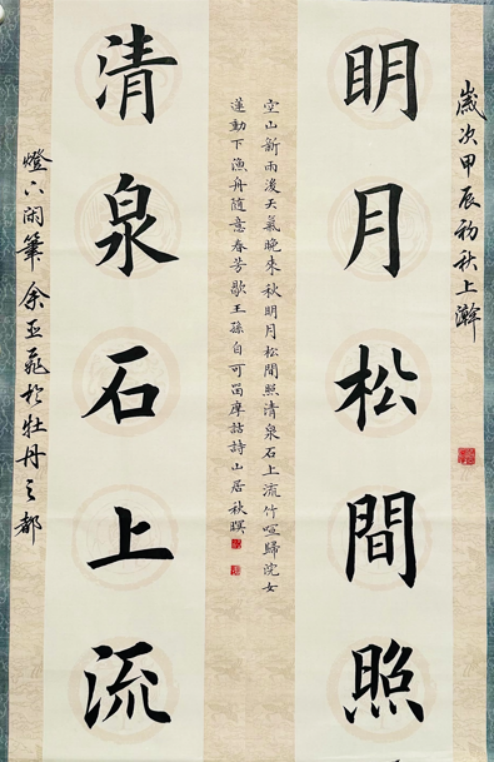 歲次甲辰初秋上澣
明月松間照
空山新雨後天氣晚來秋明月松間照清泉石上流竹喧歸浣女
蓮動下漁舟隨意春芳歇王孫自可留摩詰詩山居秋暝
清泉石上流
燈下閑筆余亚飛於牡丹之都